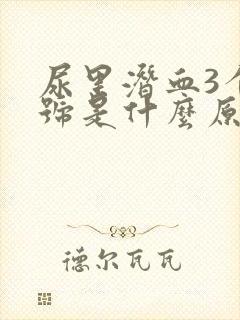 尿里潛血3个
號是什麼原
德尔瓦瓦